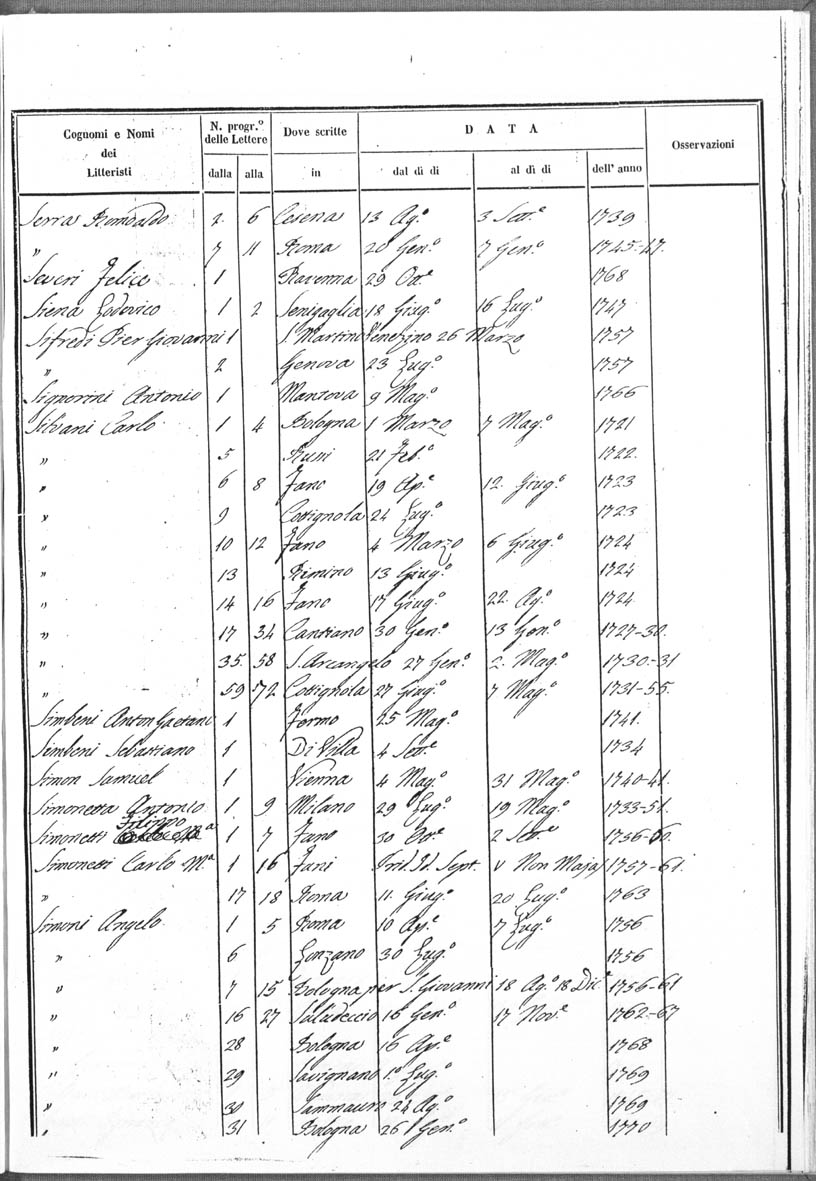 Cognomi e Nomi dei Litteristi N. progr.º delle Lettere dalla alla Dove scritte in DATA dal dì di al dì di dell' anno Osservazioni
Serra Romoaldo 2 6 Cesena 13 Ag.º 3 Sett.e 1739
" 7 11 Roma 20 Gen.º 7 Gen.º 1745-47
Severi Felice 1 Ravenna 29 Ott.e 1768
Siena Lodovico 1 2 Senigaglia 18 Giug.º 16 Lug.º 1747
Sifredi Pier Giovanni 1 S. Martino 26 Marzo 1757
" 2 Genova 23 Lug.º 1757
Signorini Antonio 1 Mantova 9 Mag.º 1766
Silvani Carlo 1 4 Bologna 1 Marzo 7 Mag.º 1721
" 5 21 Feb.º 1722
" 6 8 Fano 19 Ap.e 12 Giug.º 1723
" 9 Cottignola 24 Lug.º 1723
" 10 12 Fano 4 Marzo 6 Giug.º 1724
" 13 Rimino 13 Giug.º 1724
" 14 16 Fano 17 Giug.º 22 Ag.º 1724
" 17 34 Cantiano 30 Gen.º 13 Gen.º 1727-30
" 35 58 S. Arcangelo 27 Gen.º 2 Mag.º 1730-31
" 59 72 Cottignola 27 Giug.º 7 Mag.º 1731-55
Simbeni Anton Gaetano 1 Fermo 25 Mag.º 1741
Simbeni Sebastiano 1 Di Villa 4 Sett.e 1734
Simon Samuel 1 Vienna 4 Mag.º 31 Mag.º 1740-41
Simonetta Antonio 1 9 Milano 29 Lug.º 19 Mag.º 1733-51
Simonetti Filippo M.a 1 7 Fano 30 Ott.e 2 Sett.e 1756-60
Simonetti Carlo M.a 1 16 Fani Prid. Id. Sept. V Non Maja 1757-61
" 17 18 Roma 11 Giug.º 20 Lug.º 1763
Simoni Angelo 1 5 Roma 10 Ap.e 7 Lug.º 1756
" 6 Genzano 30 Lug.º 1756
" 7 15 Bologna per S. Giovanni 18 Ag.º 18 Dic.e 1756-61
" 16 27 Saludeccio 16 Gen.º 17 Nov.e 1762-67
" 28 Bologna 16 Ap.e 1768
" 29 Savignano 1.º Lug.º 1769
" 30 Sammauro 24 Ag.º 1769
" 31 Bologna 26 Gen.º 1770